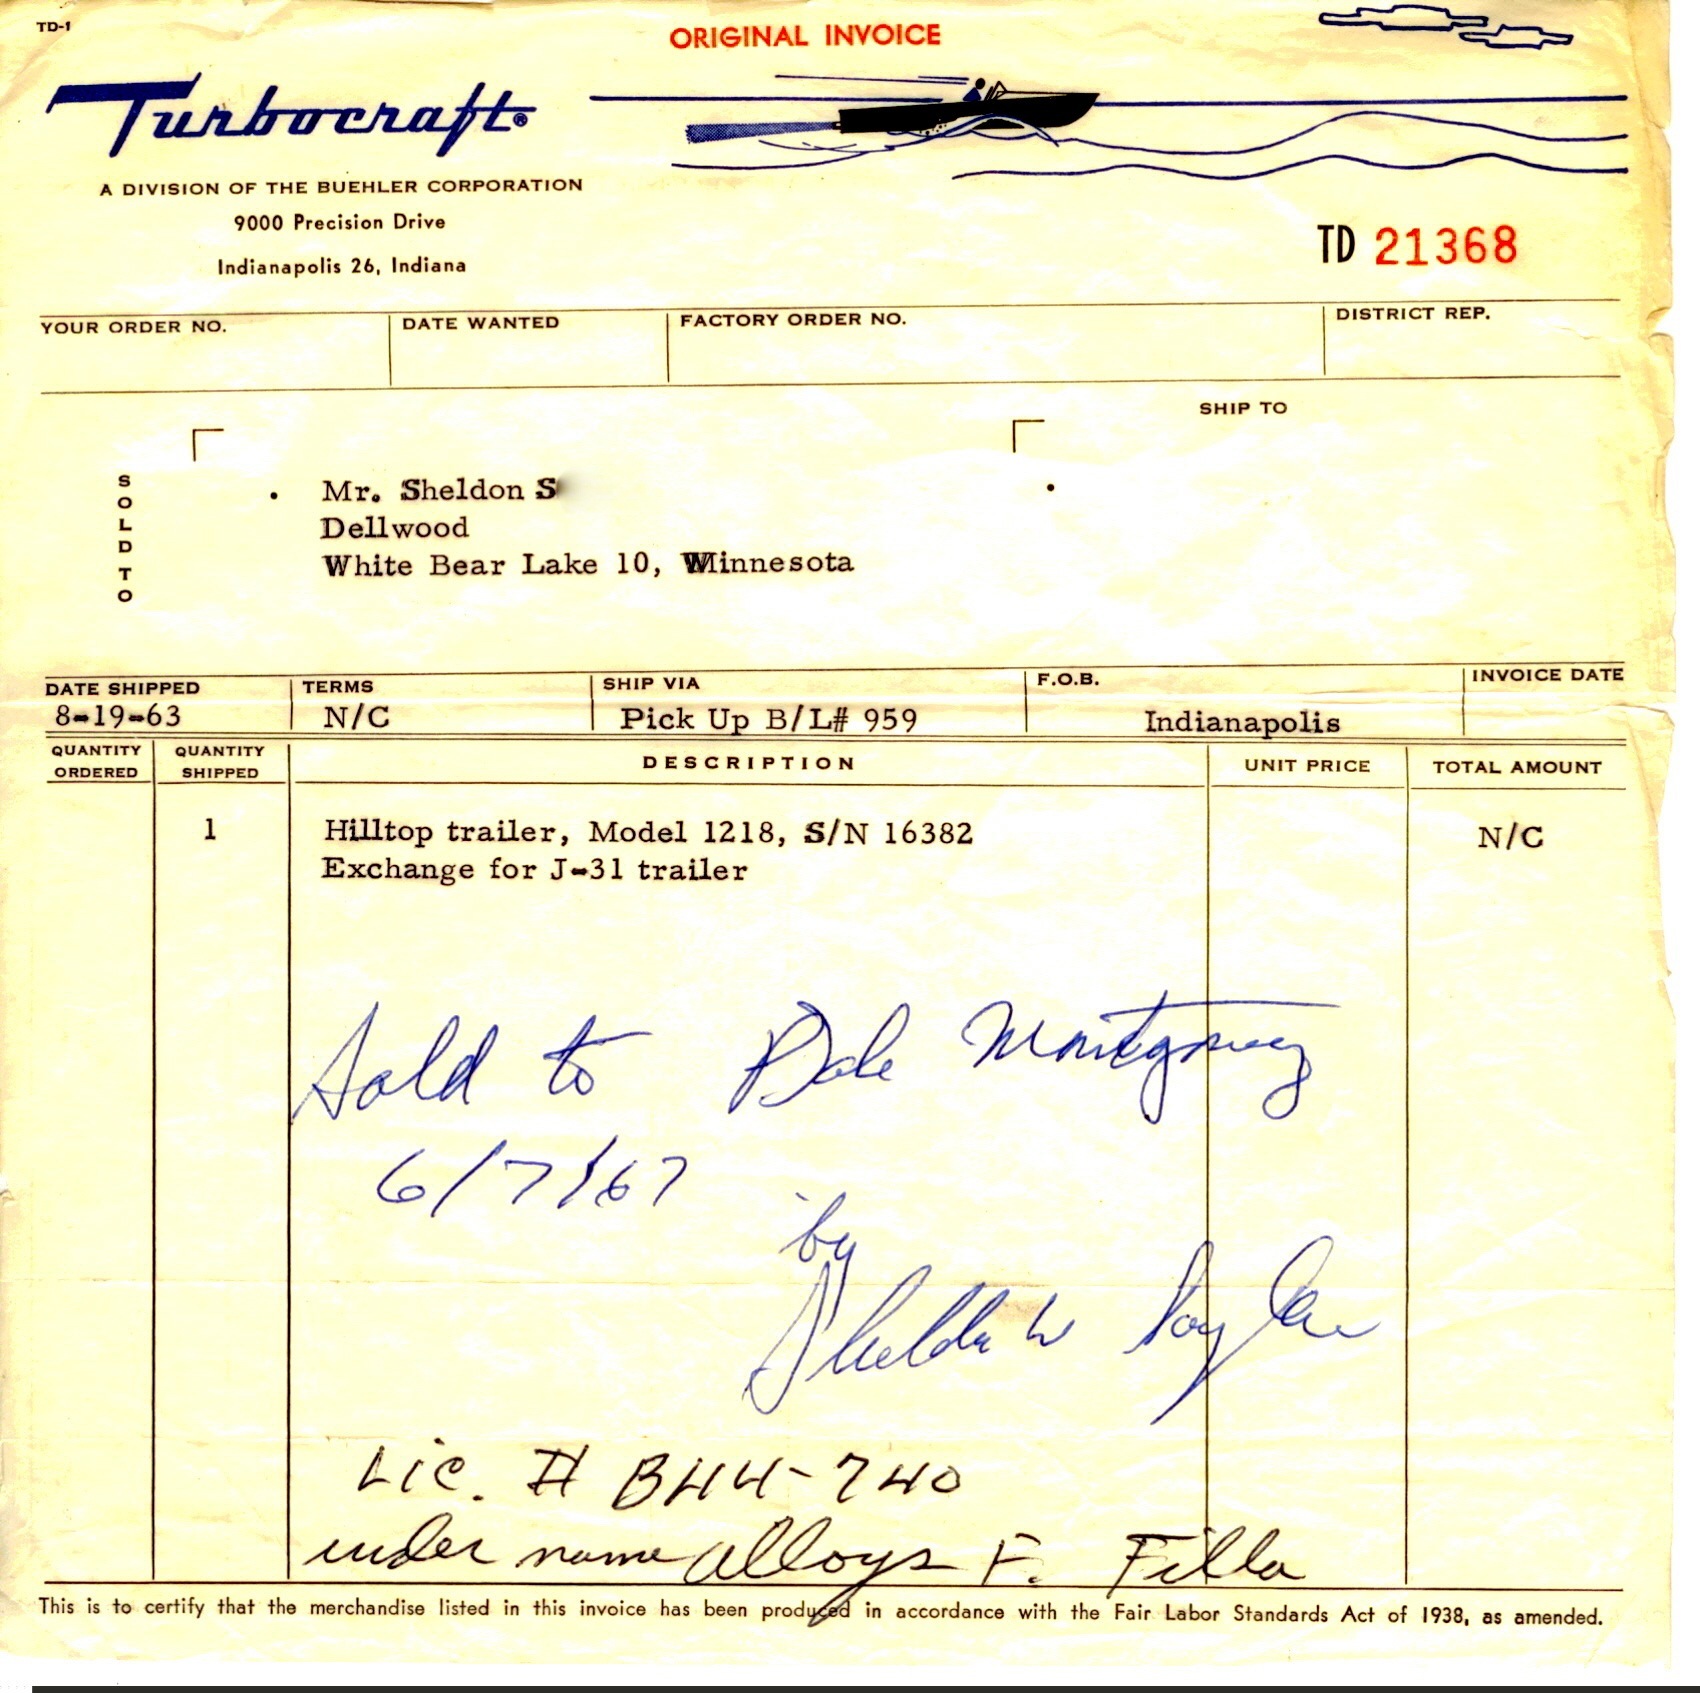 TD-1
ORIGINAL INVOICE
Turbocraft®
A DIVISION OF THE BUEHLER CORPORATION
9000 Precision Drive
Indianapolis 26, Indiana
TD 21368
YOUR ORDER NO. DATE WANTED FACTORY ORDER NO. DISTRICT REP.
SHIP TO
SOLD TO
Mr. Sheldon S
Dellwood
White Bear Lake 10, Minnesota
DATE SHIPPED TERMS SHIP VIA F.O.B. INVOICE DATE
8-19-63 N/C Pick Up B/L# 959 Indianapolis
QUANTITY ORDERED QUANTITY SHIPPED DESCRIPTION UNIT PRICE TOTAL AMOUNT
1 Hilltop trailer, Model 1218, S/N 16382 N/C
Exchange for J-31 trailer
Sold to Dale Montgomery
6/7/67
by
Sheldon W
Lic. # B44-740
under name Alloys F. Filla
This is to certify that the merchandise listed in this invoice has been produced in accordance with the Fair Labor Standards Act of 1938, as amended.